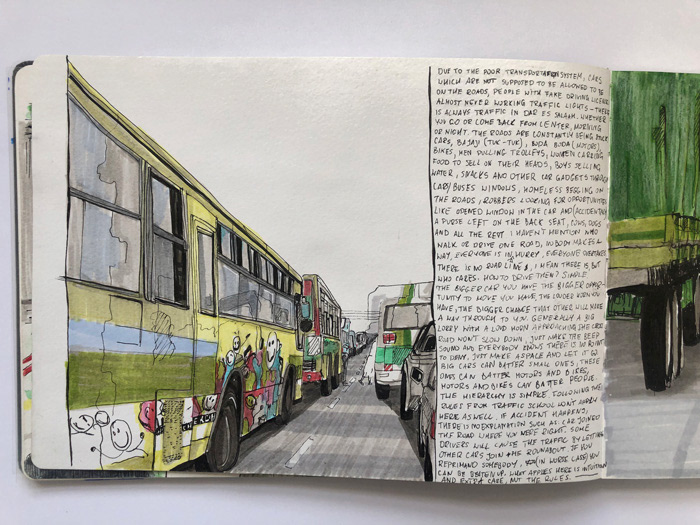 DUE TO THE POOR TRANSPORTATION SYSTEM, CARS
WHICH ARE NOT SUPPOSED TO BE ALLOWED TO BE
ON THE ROADS, PEOPLE WITH FAKE DRIVING LICENSE
ALMOST NEVER WORKING TRAFFIC LIGHTS - THERE
IS ALWAYS TRAFFIC IN DAR ES SALAAM. WHETHER
YOU GO OR COME BACK FROM CENTER, MORNING
OR NIGHT. THE ROADS ARE CONSTANTLY BEING
CARS, BAJAJ (TUK-TUK), BODA BODA (MOTORS),
BIKES, MEN PULLING TROLLEYS, WOMEN CARRYING
FOOD TO SELL ON THEIR HEADS, BOYS SELLING
WATER, SNACKS AND OTHER CAR GADGETS THROUGH
CARS/BUSES WINDOWS, HOMELESS BEGGING ON
THE ROADS, ROBBERS LOOKING FOR OPPORTUNITIES
LIKE OPENED WINDOW IN THE CAR AND (ACCIDENTALLY)
A PURSE LEFT ON THE BACK SEAT, COWS, DOGS
AND ALL THE REST I HAVEN'T MENTION WHO
WALK OR DRIVE ONE ROAD, NOBODY MAKES A
WAY, EVERYONE IS IN HURRY, EVERYONE OVERTAKES
THERE IS NO ROAD LINES, I MEAN THERE IS, BUT
WHO CARES. HOW TO DRIVE THEN? SIMPLE.
THE BIGGER CAR YOU HAVE THE BIGGER OPPOR-
TUNITY TO MOVE YOU HAVE, THE LOUDER HORN YOU
HAVE, THE BIGGER CHANCE THAT OTHER WILL MAKE
A WAY THROUGH TO YOU. GENERALLY A BIG
LORRY WITH A LOUD HORN APPROACHING THE CROSS
ROAD WON'T SLOW DOWN, JUST MAKE THE BEEP
SOUND AND EVERYBODY KNOWS THERE IS NO POINT
TO DENY, JUST MAKE A SPACE AND LET IT GO
BIG CARS CAN BATTER SMALL ONES, THESE
ONES CAN BATTER MOTORS AND BIKES,
MOTORS AND BIKES CAN BATTER PEOPLE.
THE HIERARCHY IS SIMPLE. FOLLOWING THE
RULES FROM TRAFFIC SCHOOL WON'T APPLY
HERE AS WELL. IF ACCIDENT HAPPENS,
THERE IS NO EXPLANATION SUCH AS: CAR JOINED
THE ROAD WHERE YOU WERE RIGHT. SOME
DRIVERS WILL CAUSE THE TRAFFIC BY LETTING
OTHER CARS JOIN THE ROUNDABOUT. IF YOU
REPRIMAND SOMEBODY, (IN WORSE CASE) YOU
CAN BE BEATEN UP. WHAT APPLIES HERE IS INTUITION
AND EXTRA CARE, NOT THE RULES.